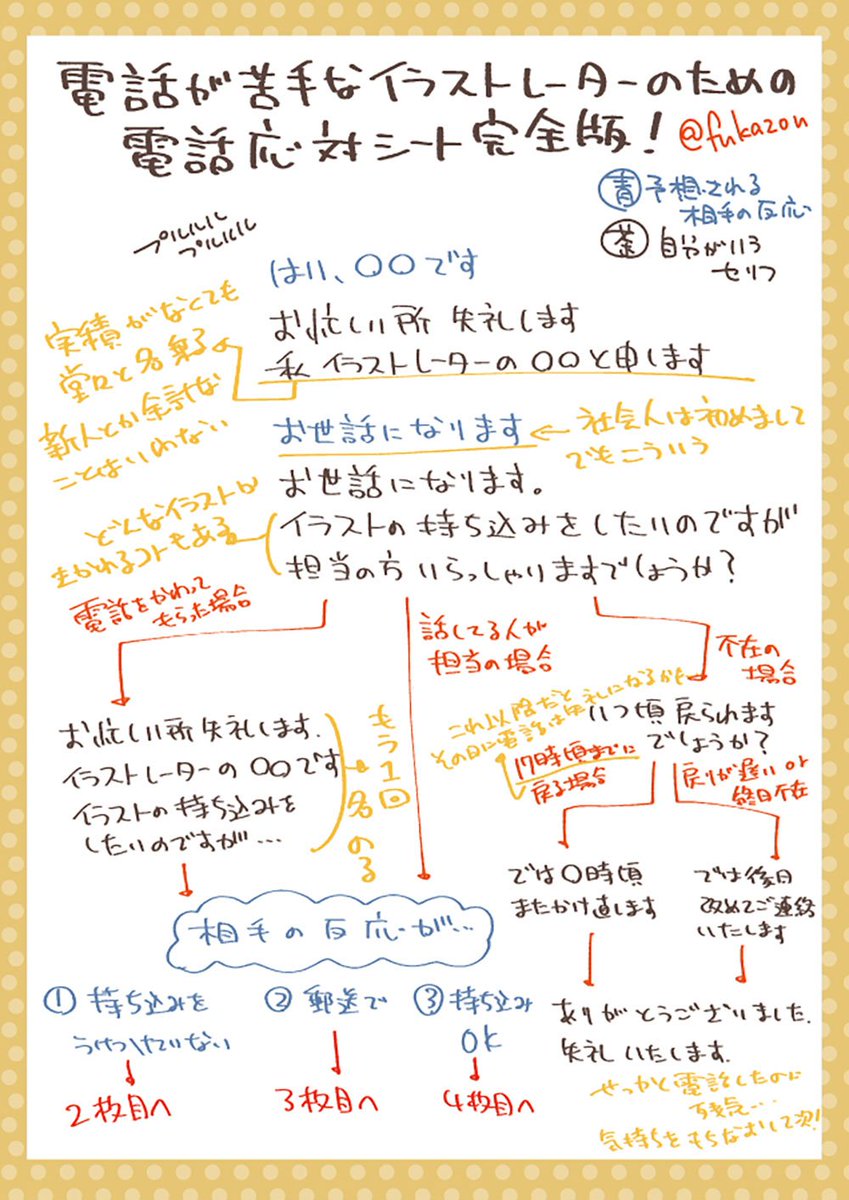 電話が苦手なイラストレーターのための
電話応対シート完全版！
@fukazon
青 予想される
相手の反応
茶 自分がいう
セリフ
プルルルル
プルルルル
はい、〇〇です
お忙しい所 失礼します
私 イラストレーターの〇〇と申します
実績がなくても
堂々と名乗る
新人とか余計な
ことはいわない
お世話になります
社会人は初めまして
でもこういう
お世話になります。
イラストの持ち込みをしたいのですが
担当の方 いらっしゃりますでしょうか？
どんなイラストか
きかれるコトもある
電話をかわって
もらった場合
お忙しい所 失礼します.
イラストレーターの 〇〇です
イラストの持ち込みを
したいのですが…
もう1回
名のる
話してる人が
担当の場合
不在の
場合
いつ頃戻られます
でしょうか？
これ以降だと
その日に電話は失礼になるかも
17時頃までに
戻る場合
戻りが遅い or
終日不在
では〇時頃
またかけ直します
では後日
改めてご連絡
いたします
ありがとうございました.
失礼いたします.
せっかく電話したのに
残念…
気持ちをもちなおして次!
相手の反応が…
① 持ち込みを
うけつけていない
2枚目へ
② 郵送で
3枚目へ
③ 持ち込み
OK
4枚目へ